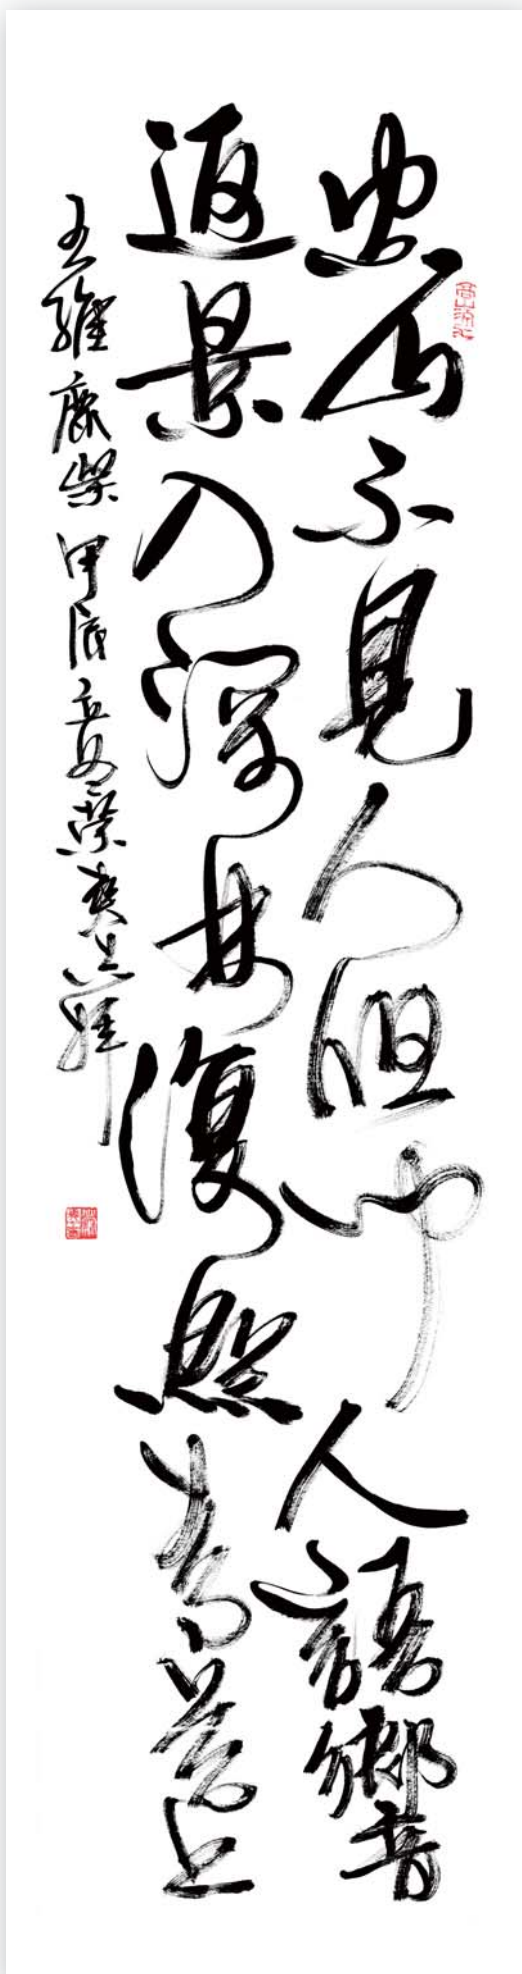 空山不見人但聞人語響
返景入深林復照青苔上
王維鹿柴甲辰立夏榮